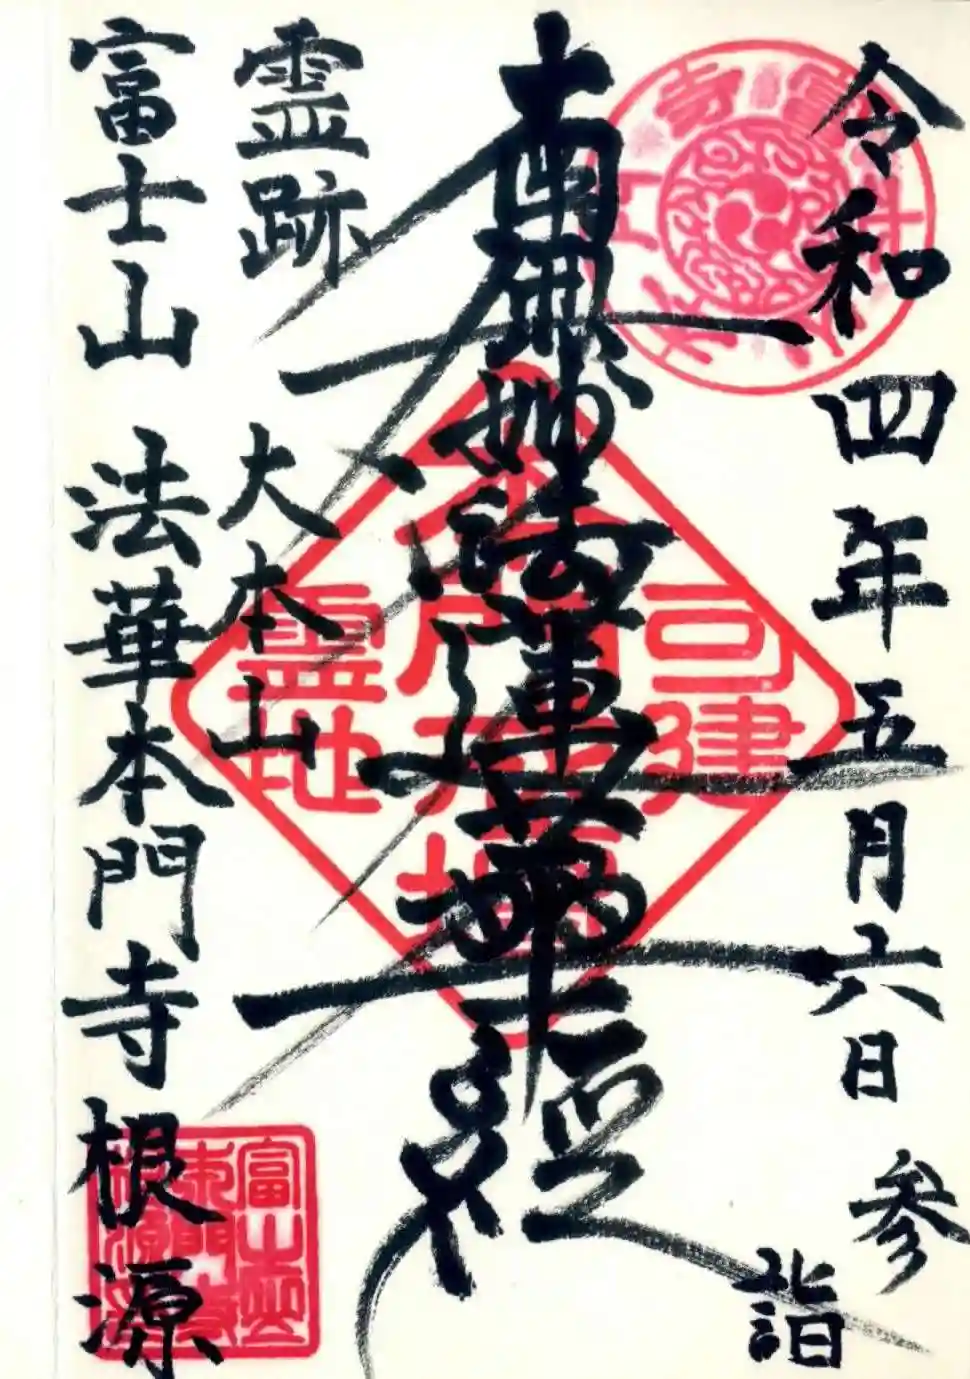 令和四年五月六日 参詣
南無妙法蓮華経
霊跡 大本山
富士山 法華本門寺根源
司建
本門戒壇
霊地